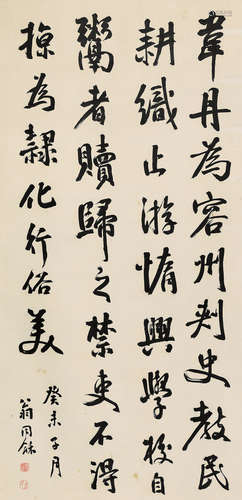 韋丹為容州刾史教民
耕織止游惰興學校自
鬻者贖歸之禁吏不得
掠為隸化行俗美
癸未子月
翁同龢